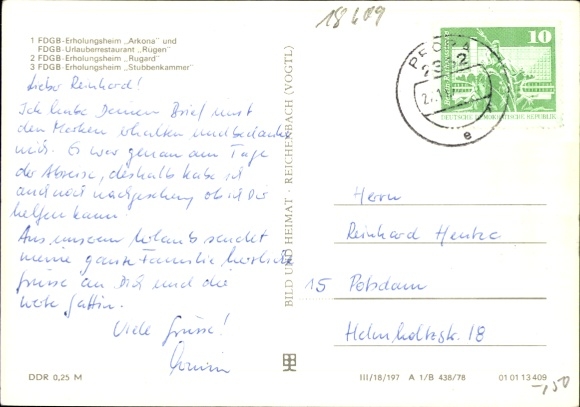 18609
1 FDGB-Erholungsheim „Arkona" und
FDGB-Urlauberrestaurant „Rügen"
2 FDGB-Erholungsheim „Rugard"
3 FDGB-Erholungsheim „Stubbenkammer"
Lieber Reinhard!
Ich habe Deinen Brief mit
den Marken erhalten und bedanke
mich. Es war genau am Tage
der Abreise, deshalb habe ich
auch noch nachgesehen, ob ich Dir
helfen kann.
Aus unserem Urlaub sendet
meine ganze Familie herzliche
Grüsse an Dich und die
werte Gattin.
Viele Grüsse!
DDR 0,25 M
BILD UND HEIMAT · REICHENBACH (VOGTL)
PRORA
2332
e
10
DEUTSCHE DEMOKRATISCHE REPUBLIK
Herrn
Reinhard Hentze
15 Potsdam
Helmholtzstr. 18
III/18/197 A 1/B 438/78 01 01 13 409
-,50